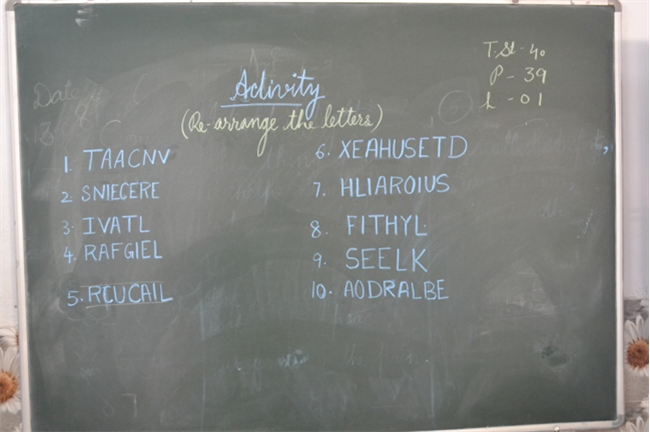 T.St - 40
P - 39
L - 01
Date
Activity
(Re-arrange the letters)
1. TAACNV
2. SNIECERE
3. IVATL
4. RAFGIEL
5. RCUCAIL
6. XEAHUSETD
7. HLIAROIUS
8. FITHYL
9. SEELK
10. AODRALBE